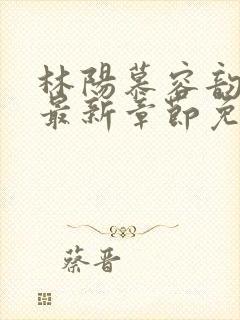 林陽慕容
最新章節免
蔡晋